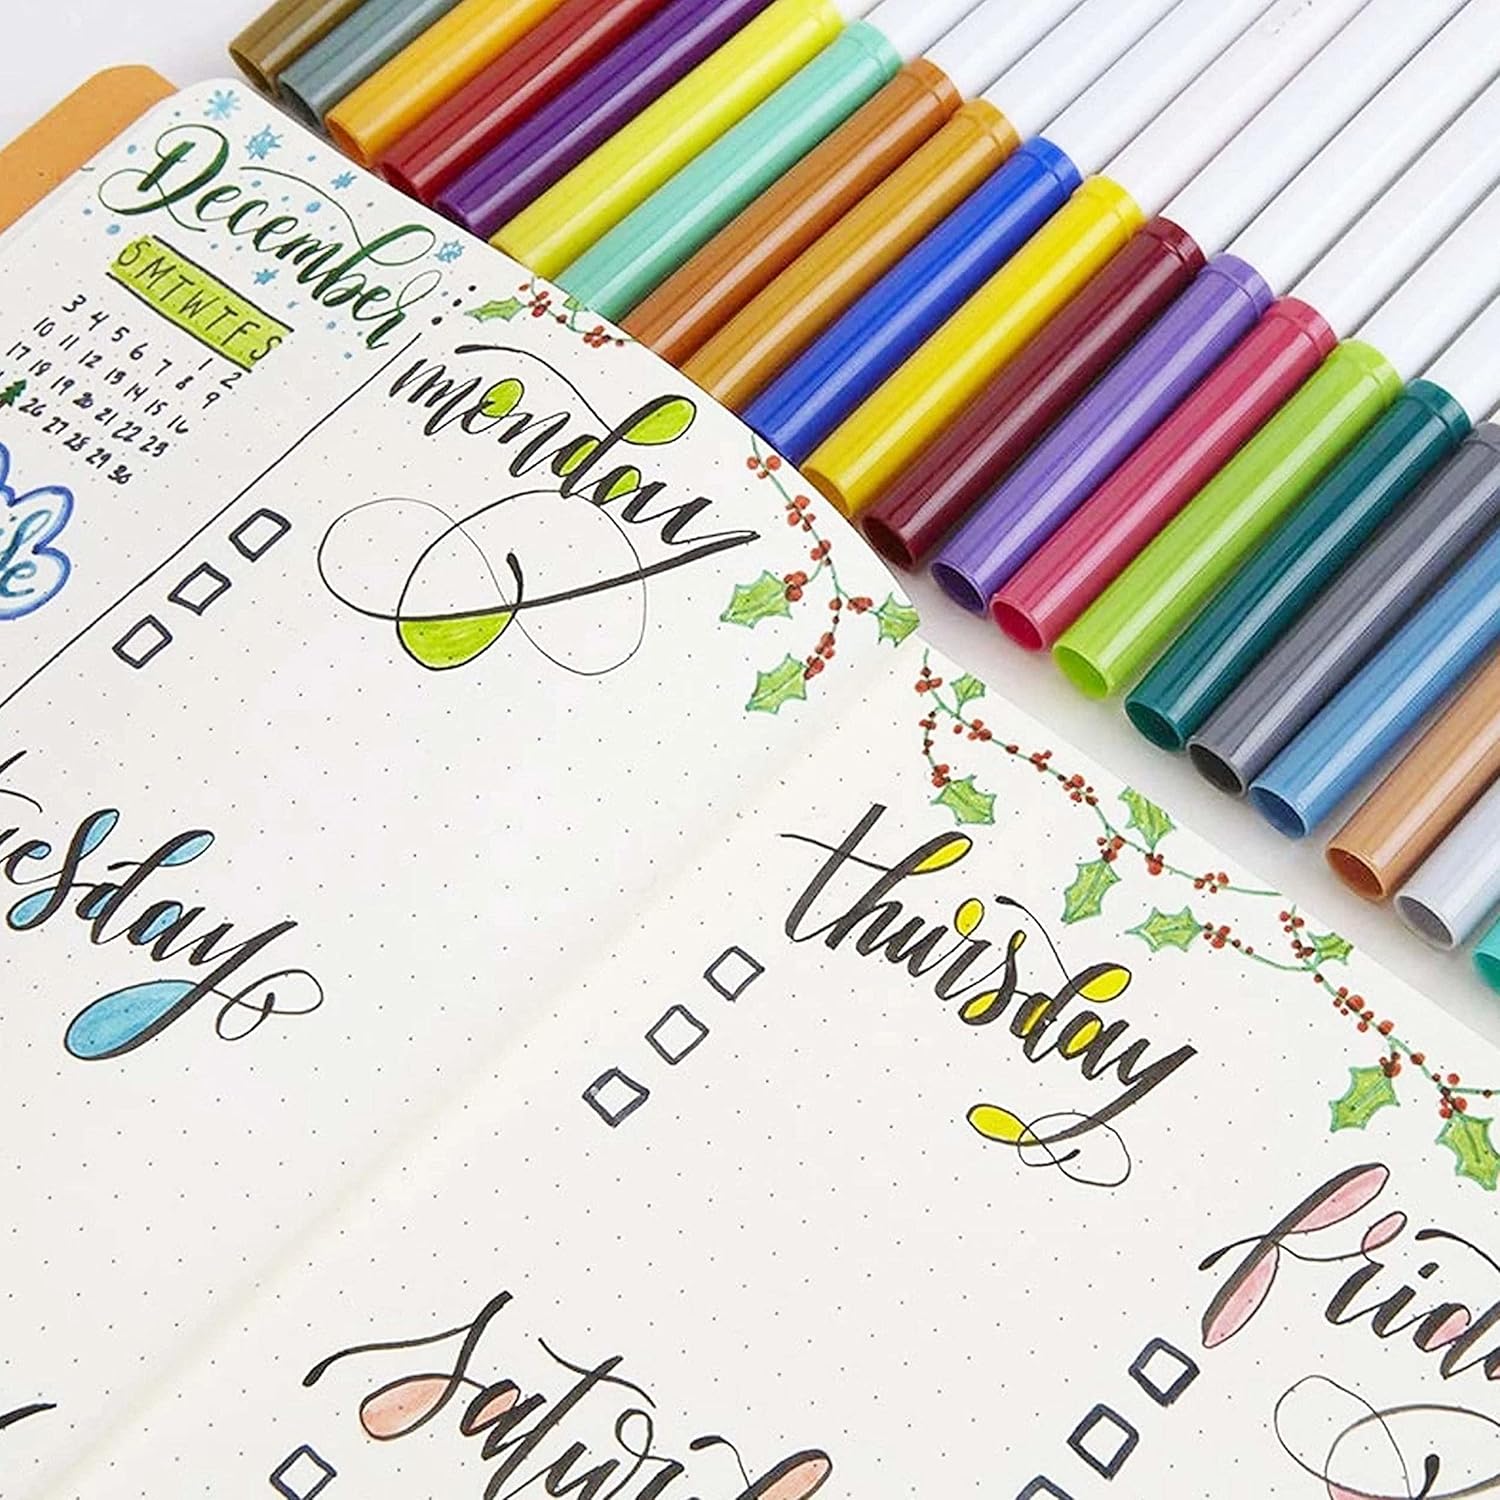 December
S M T W T F S
1 2
3 4 5 6 7 8 9
10 11 12 13 14 15 16
17 18 19 20 21 22 23
26 27 28 29 30
monday
tuesday
thursday
frida
saturd